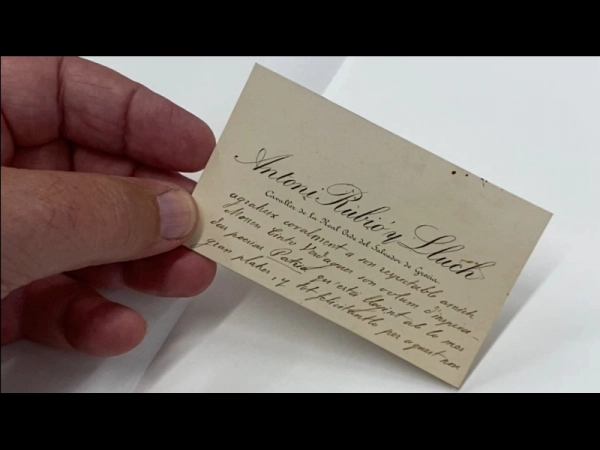 Antoni Rubió y Lluch
Cavaller de la Real Orde del Salvador de Grecia
agraheix coralment a son respectable amich
Mossen Cinto Verdaguer son volum d'inspira-
das poesias Patria qu'está llegint ab lo mes
gran plaher, y tot felicitantlo per aquest nou